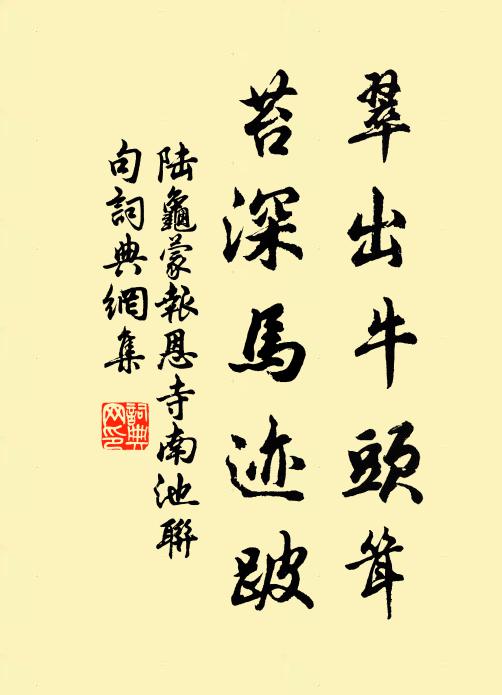 翠出牛頭聳
苔深馬迹跛
陆龜蒙報恩寺南池聯
句詞典網集
詞典网印